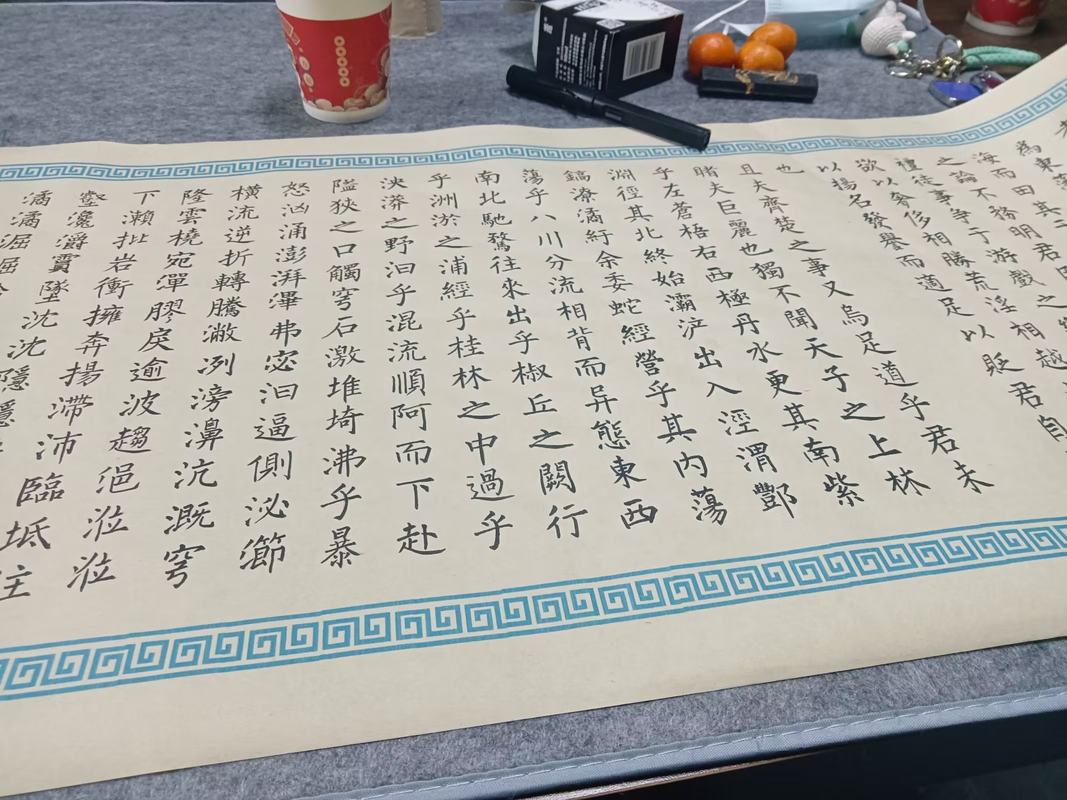 為東藩
海而田其
之論不務明君臣之
禮徒事爭于游戲之
欲以奢侈相勝荒淫相越
以揚名發譽而適足以貶君自
也
且夫齊楚之事又烏足道乎君未
睹夫巨麗也獨不聞天子之上林
乎左蒼梧右西極丹水更其南紫
淵徑其北終始灞浐出入涇渭酆
鎬潦潏紆余委蛇經營乎其內蕩
蕩乎八川分流相背而异態東西
南北馳騖往來出乎椒丘之闕行
乎洲淤之浦經乎桂林之中過乎
泱漭之野汩乎混流順阿而下赴
隘狹之口觸穹石激堆埼沸乎暴
怒洶涌澎湃滭弗宓汩逼側泌瀄
橫流逆折轉騰潎洌滂濞沆溉穹
隆雲橈宛潬膠戾逾波趨浥涖涖
下瀨批岩衝擁奔揚滯沛臨坻注
壑瀺灂霣墜沈沈隱隱
潏潏淈淈